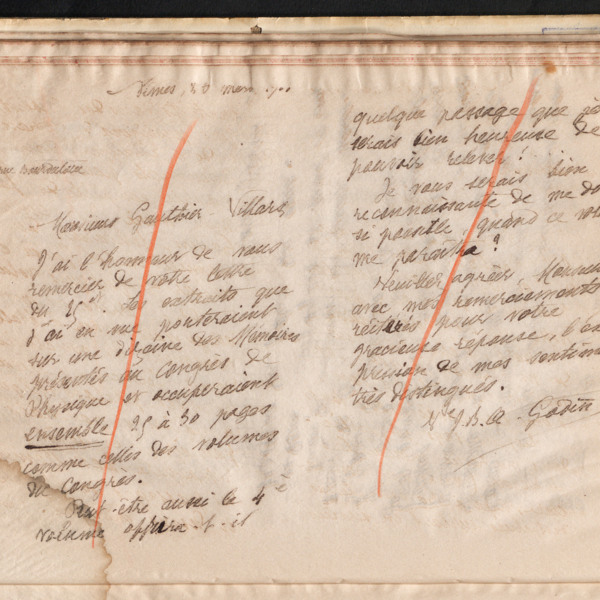 Nîmes, 20 mars
rue Bourdaloue
Monsieur Gauthier Villars
J'ai l'honneur de vous
remercier de votre lettre
du 25 ct. Les extraits que
j'ai en vue porteraient
sur une dizaine des Mémoires
présentés au Congrès de
Physique et occuperaient
ensemble 25 à 30 pages
comme celles des volumes
du Congrès.
Peut-être aussi le 4e
volume offrira-t-il
quelque passage que je
serais bien heureuse de
pouvoir relever!
Je vous serais bien
reconnaissante de me
si possible, quand ce
me paraîtra?
Veuillez agréer, Monsieur
avec mes remerciements
réitérés pour votre
gracieuse réponse, l'ex
pression de mes sentim
très distingués.
J. B. A. Godin